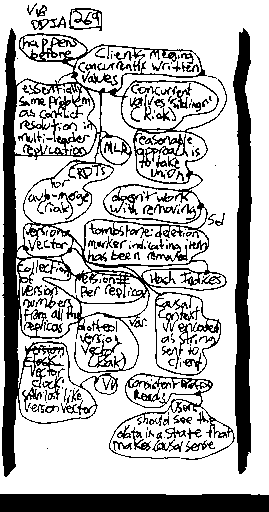 VB
DDIA 269
happens
before
Clients merging
concurrently written
values
essentially
same problem
as conflict
resolution in
multi-leader
replication
Concurrent
values 'siblings'
(Riak)
MLR
reasonable
approach is
to take
union
CRDTs
for
auto-merge
(riak)
doesn't work
with removing
Sol
tombstone: deletion
marker indicating item
has been removed
Version
Vector
Collection
of
version
numbers
from all the
replicas
version #
per replica
Hash Indices
dotted
version
vector
(Riak)
Var:
Causal
Context
VV encoded
as string
sent to
client
version
clock
vector
clock:
similar like
version vector
VB
consistent
Reads
Users
should see the
data in a state that
makes causal sense